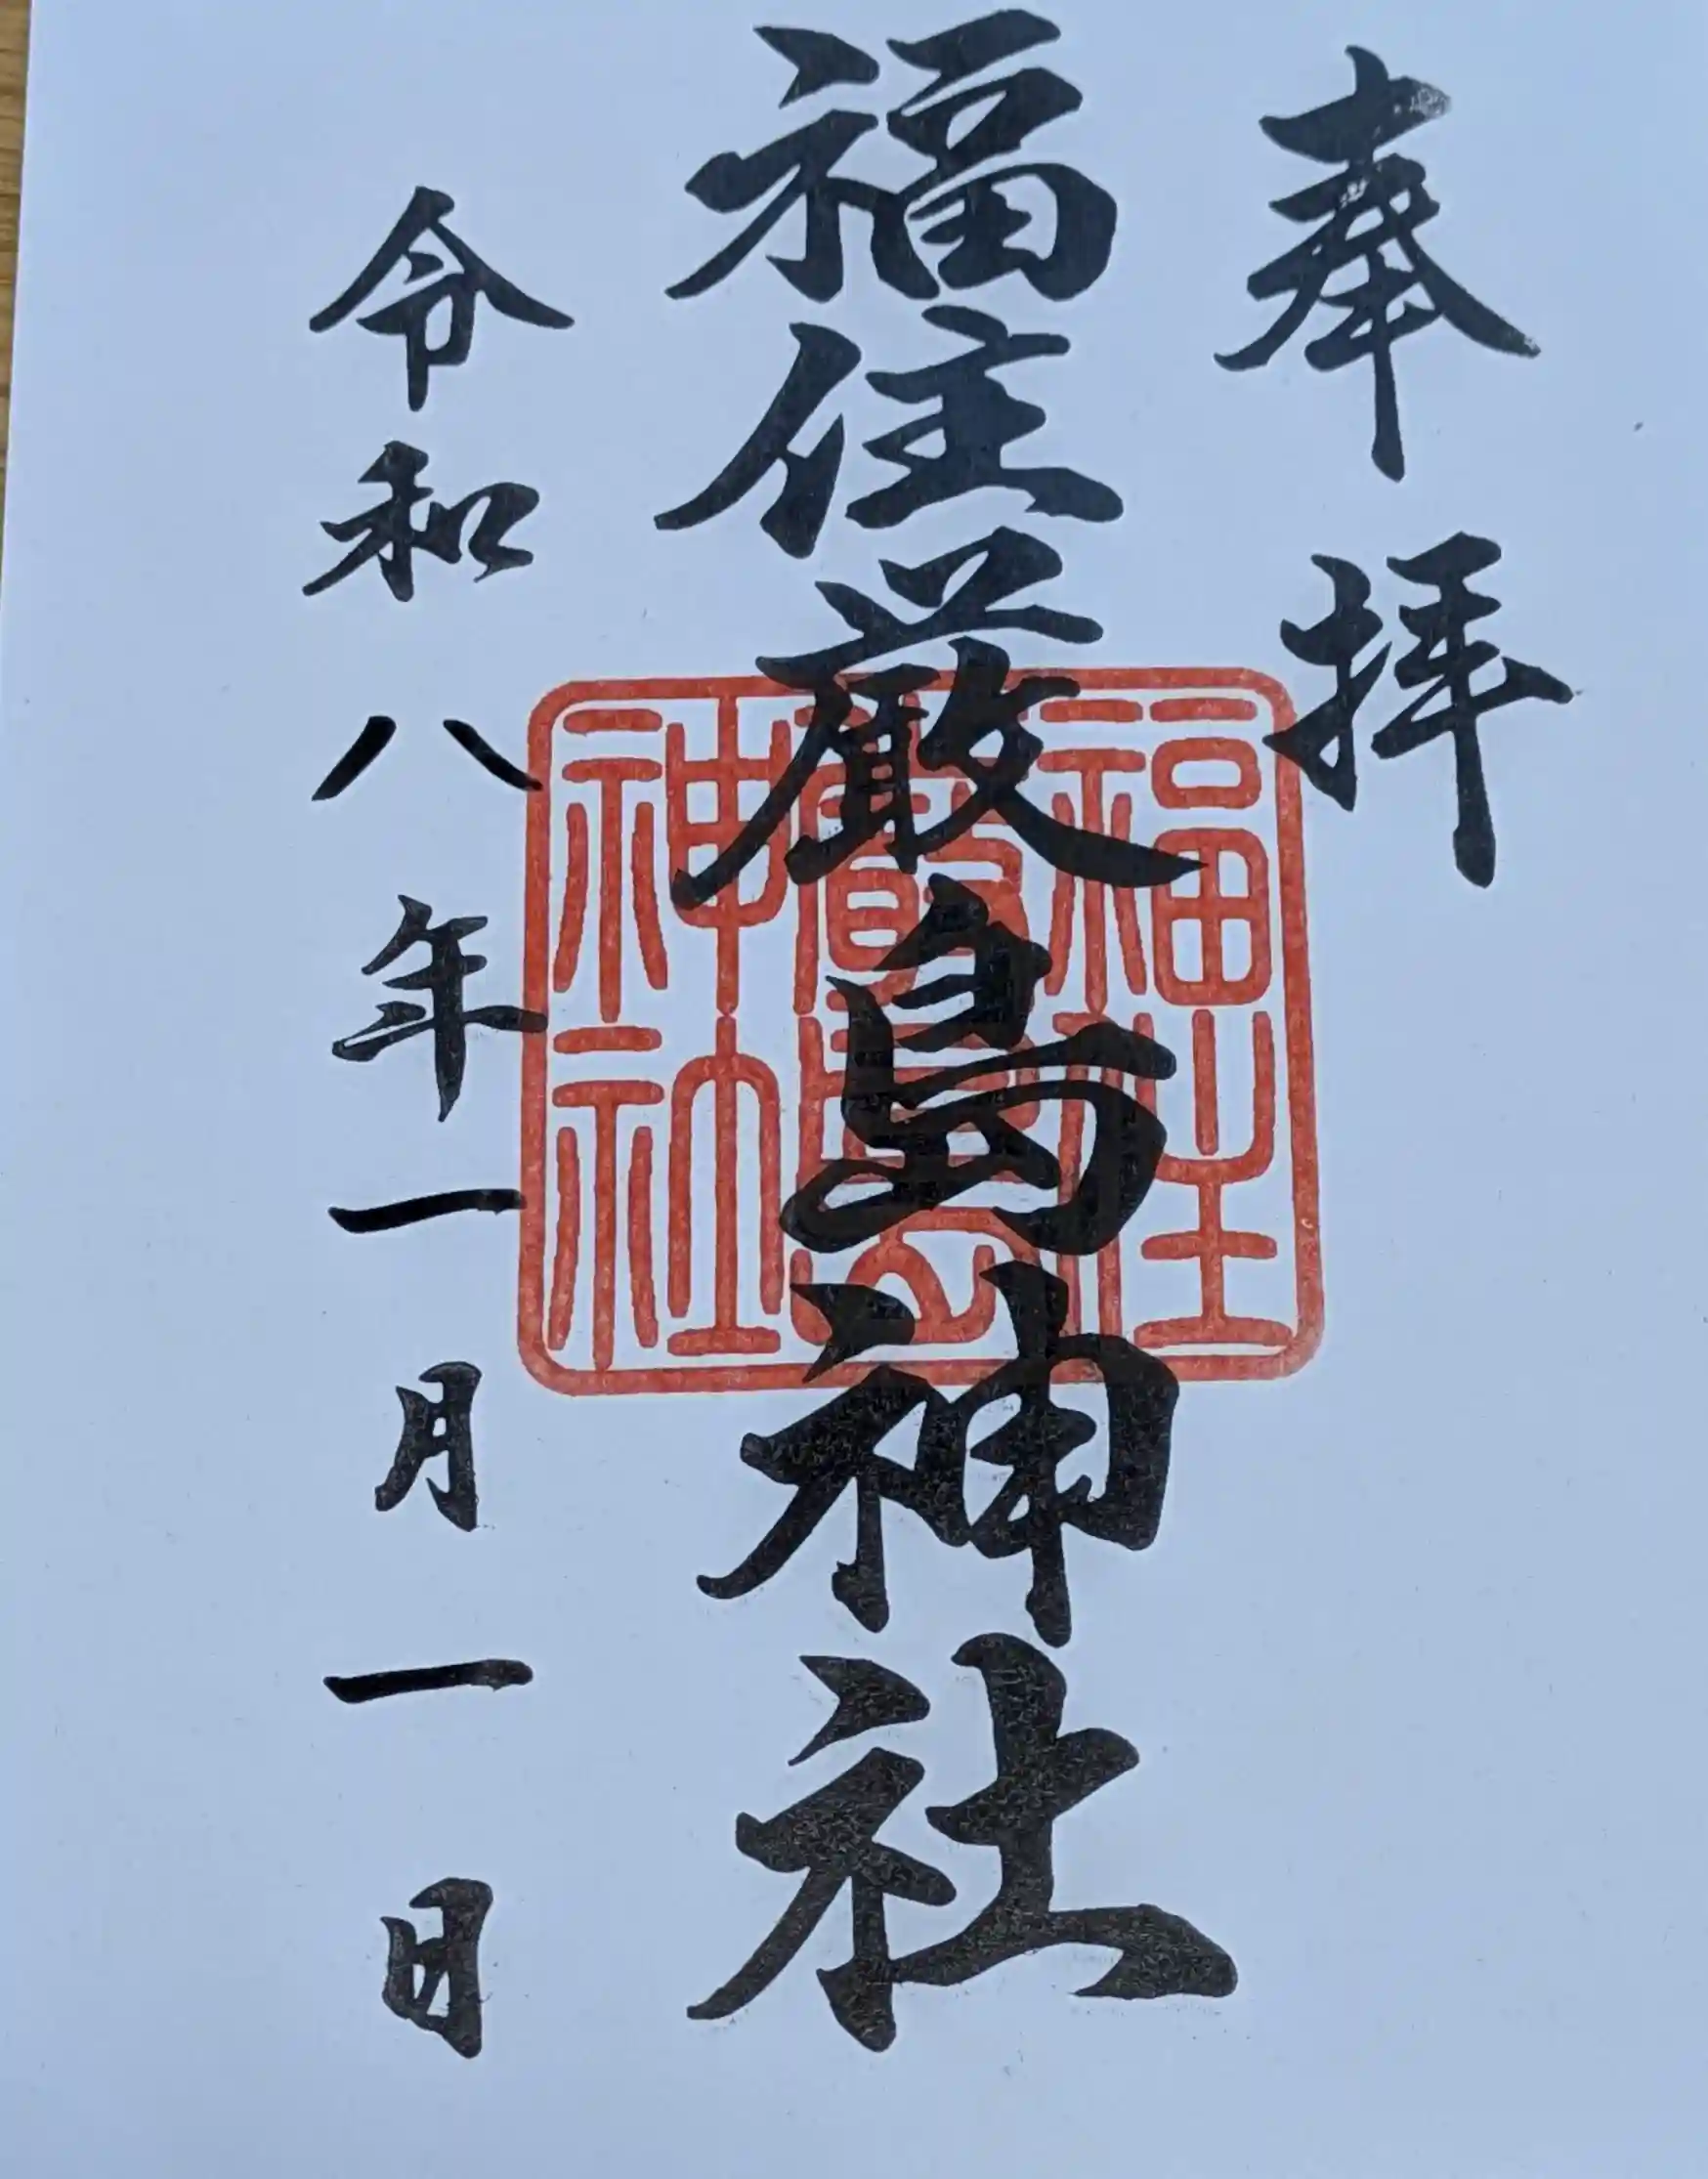 奉拝
福住厳島神社
福住
嚴島
神社
令和八年一月一日